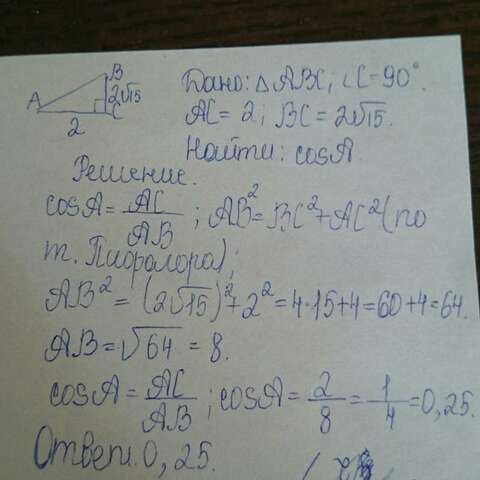 B
A
2√15
C
2
Дано: △ABC; ∠C=90°.
AC=2; BC=2√15.
Найти: cosA.
Решение.
cosA=AC/AB; AB²=BC²+AC² (по
т. Пифагора);
AB²=(2√15)²+2²=4·15+4=60+4=64.
AB=√64=8.
cosA=AC/AB; cosA=2/8=1/4=0,25.
Ответ: 0,25.